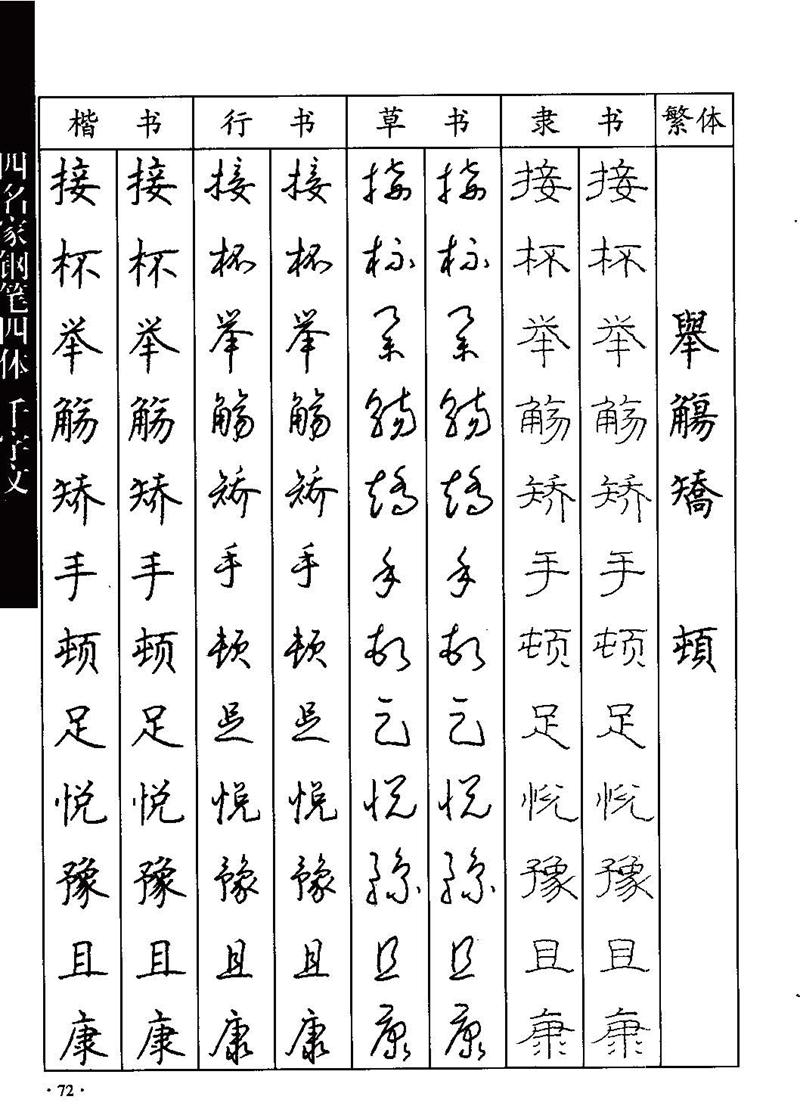 四名家钢笔四体 千字文
楷书 行书 草书 隶书 繁体
接 接 接 接 接 接 接 接
杯 杯 杯 杯 杯 杯 杯 杯
举 举 举 举 举 举 举 举 舉
觞 觞 觞 觞 觞 觞 觞 觞 觴
矫 矫 矫 矫 矫 矫 矫 矫 矯
手 手 手 手 手 手 手 手
顿 顿 顿 顿 顿 顿 顿 顿 頓
足 足 足 足 足 足 足 足
悦 悦 悦 悦 悦 悦 悦 悦
豫 豫 豫 豫 豫 豫 豫 豫
且 且 且 且 且 且 且 且
康 康 康 康 康 康 康 康
·72·